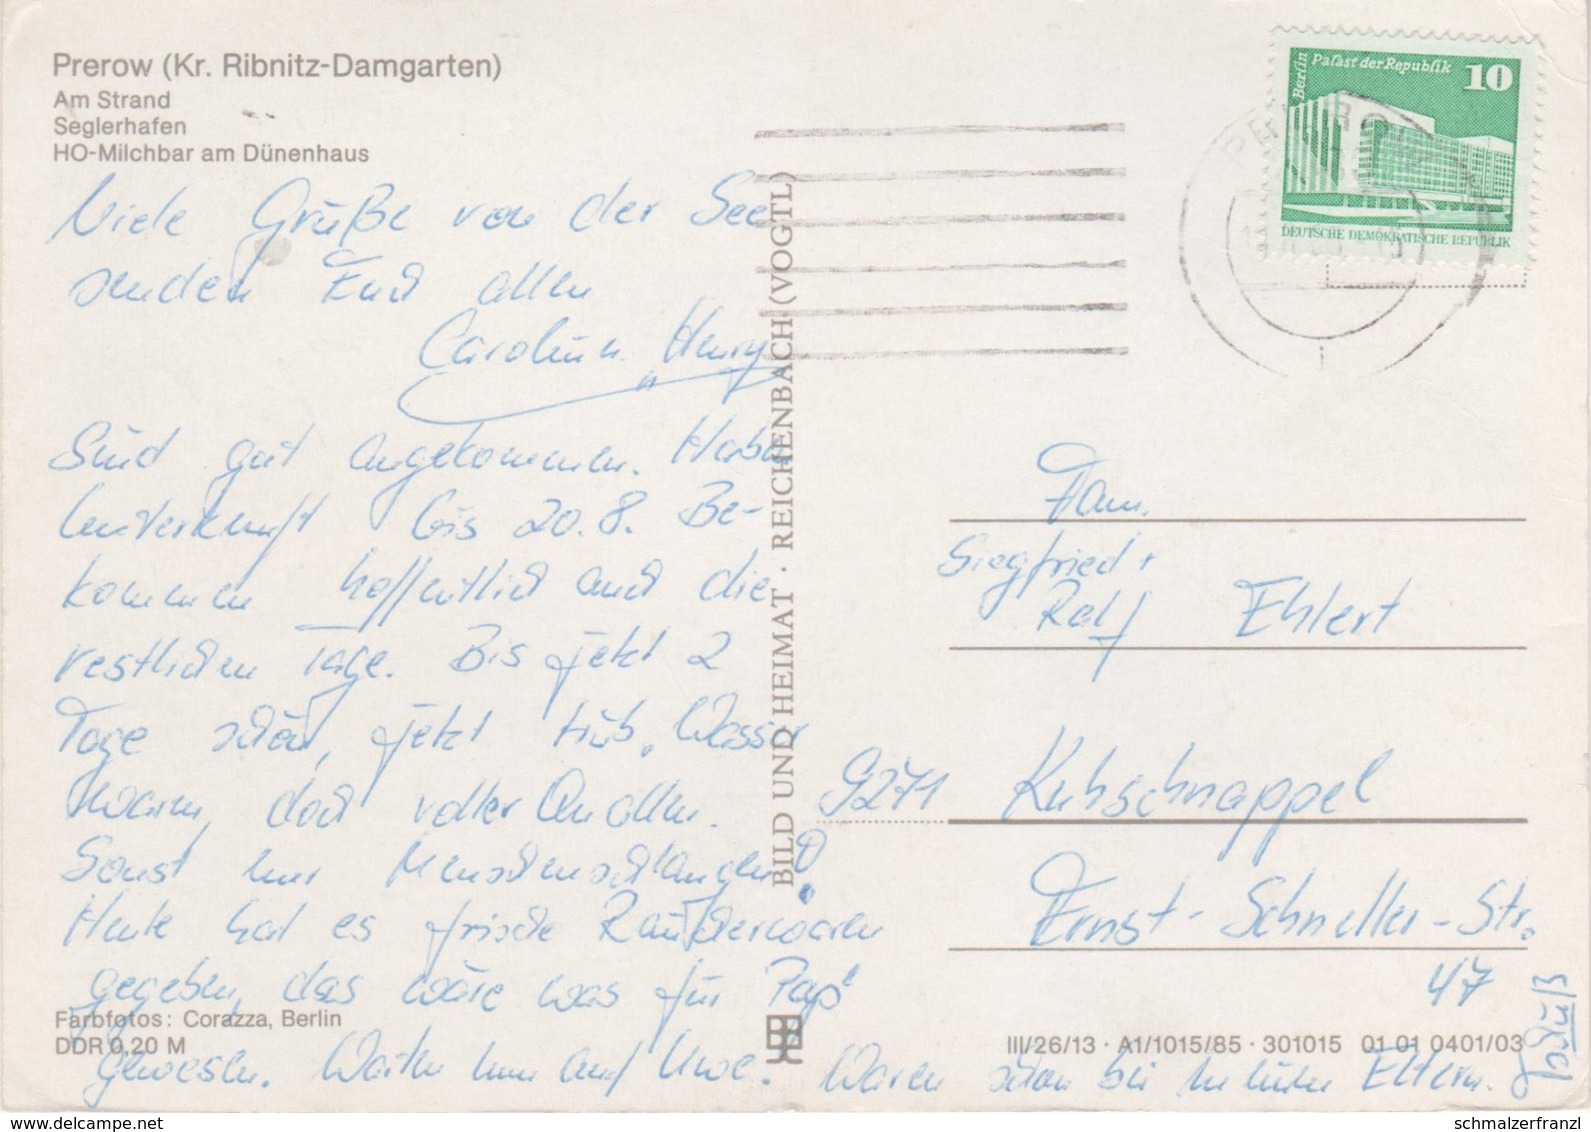 Prerow (Kr. Ribnitz-Damgarten)
Am Strand
Seglerhafen
HO-Milchbar am Dünenhaus
Viele Grüße von der See
senden Euch allen
Carolin u. Henry
Sind gut angekommen. Haben
Unterkunft bis 20.8. Be-
kommen hoffentlich auch die
restlichen Tage. Bis jetzt 2
Tage schön, jetzt trüb. Wasser
warm, doch voller Quallen.
Sonst nur Menschenschlangen!
Heute hat es frische Räucherwaren
gegeben, das wäre was für Paps
gewesen. Warten nun auf Uwe. Waren schon bei meinen Eltern.
Tschüß
Farbfotos: Corazza, Berlin
DDR 0,20 M
BILD UND HEIMAT · REICHENBACH (VOGTL)
III/26/13 · A1/1015/85 · 301015 01 01 0401/03
Berlin
Palast der Republik
10
DEUTSCHE DEMOKRATISCHE REPUBLIK
PREROW
Fam.
Siegfried +
Ralf Ehlert
9271 Kuhschnappel
Ernst-Schneller-Str.
47
www.delcampe.net
schmalzerfranzl